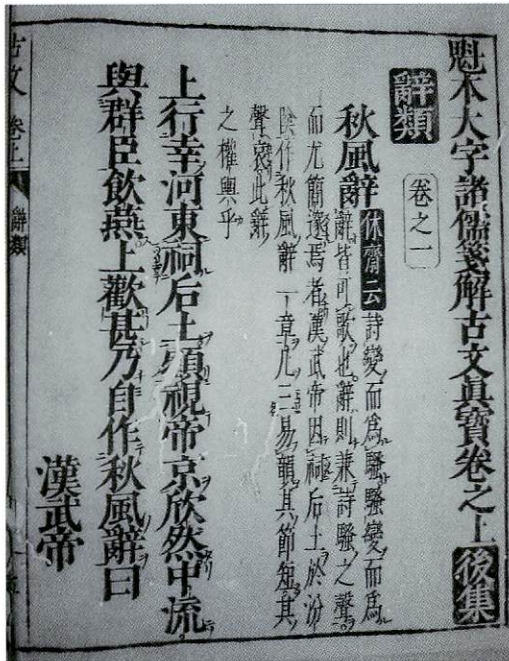 魁本大字諸儒箋解古文眞寳卷之上後集
辭類 卷之一
秋風辭 休齋云 詩變而爲騷騷變而爲
辭皆可歌也辭則兼詩騷之聲
而尤簡邃焉者漢武帝因祠后土於汾
陰作秋風辭一章凡三易韻其節短其
聲哀此辭
之權輿乎
上行幸河東祠后土顧視帝京欣然中流
與群臣飲燕上歡甚乃自作秋風辭曰
漢武帝
古文 卷上 辭類